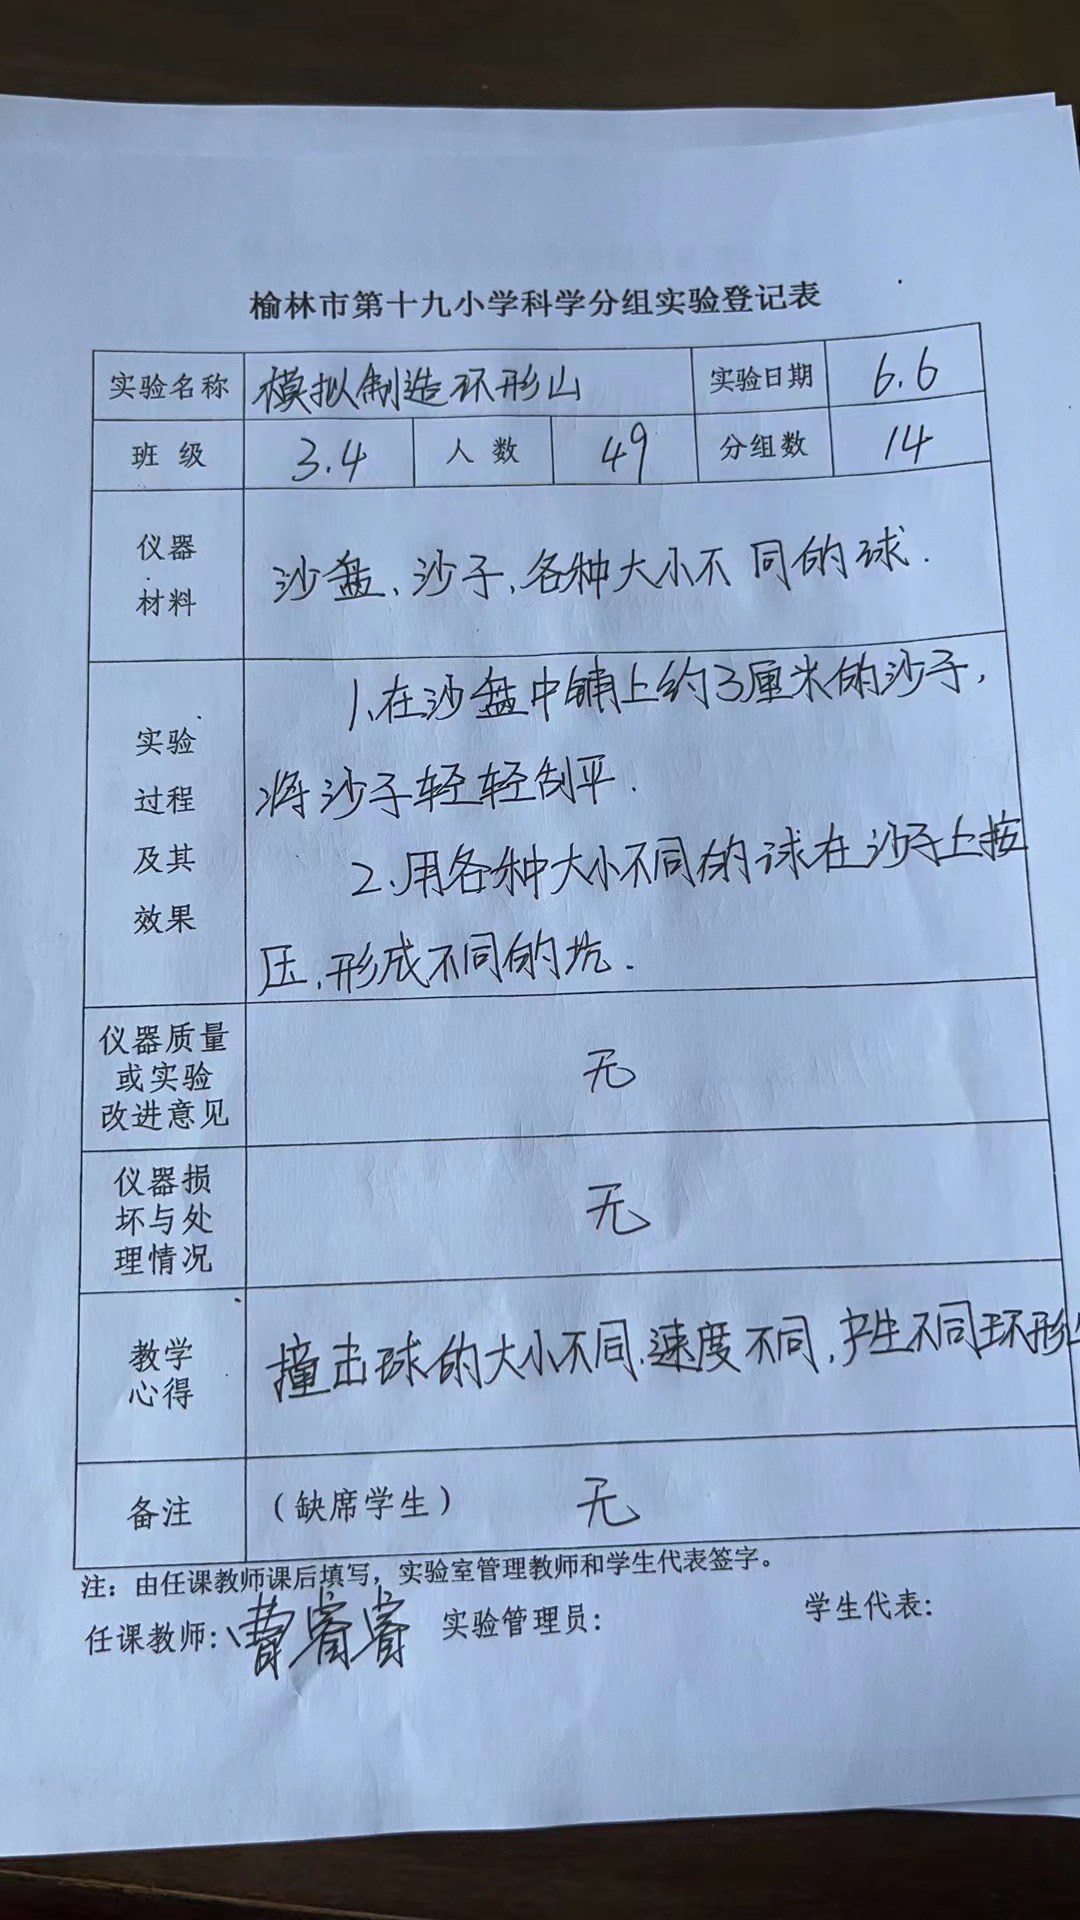 榆林市第十九小学科学分组实验登记表
实验名称 模拟制造环形山 实验日期 6.6
班级 3.4 人数 49 分组数 14
仪器
材料
沙盘、沙子、各种大小不同的球.
实验
过程
及其
效果
1、在沙盘中铺上约3厘米的沙子,
将沙子轻轻刮平.
2、用各种大小不同的球在沙子上按
压,形成不同的坑.
仪器质量
或实验
改进意见
无
仪器损
坏与处
理情况
无
教学
心得
撞击球的大小不同,速度不同,产生不同环形山
备注 (缺席学生) 无
注:由任课教师课后填写,实验室管理教师和学生代表签字。
任课教师: 曹睿睿 实验管理员: 学生代表: